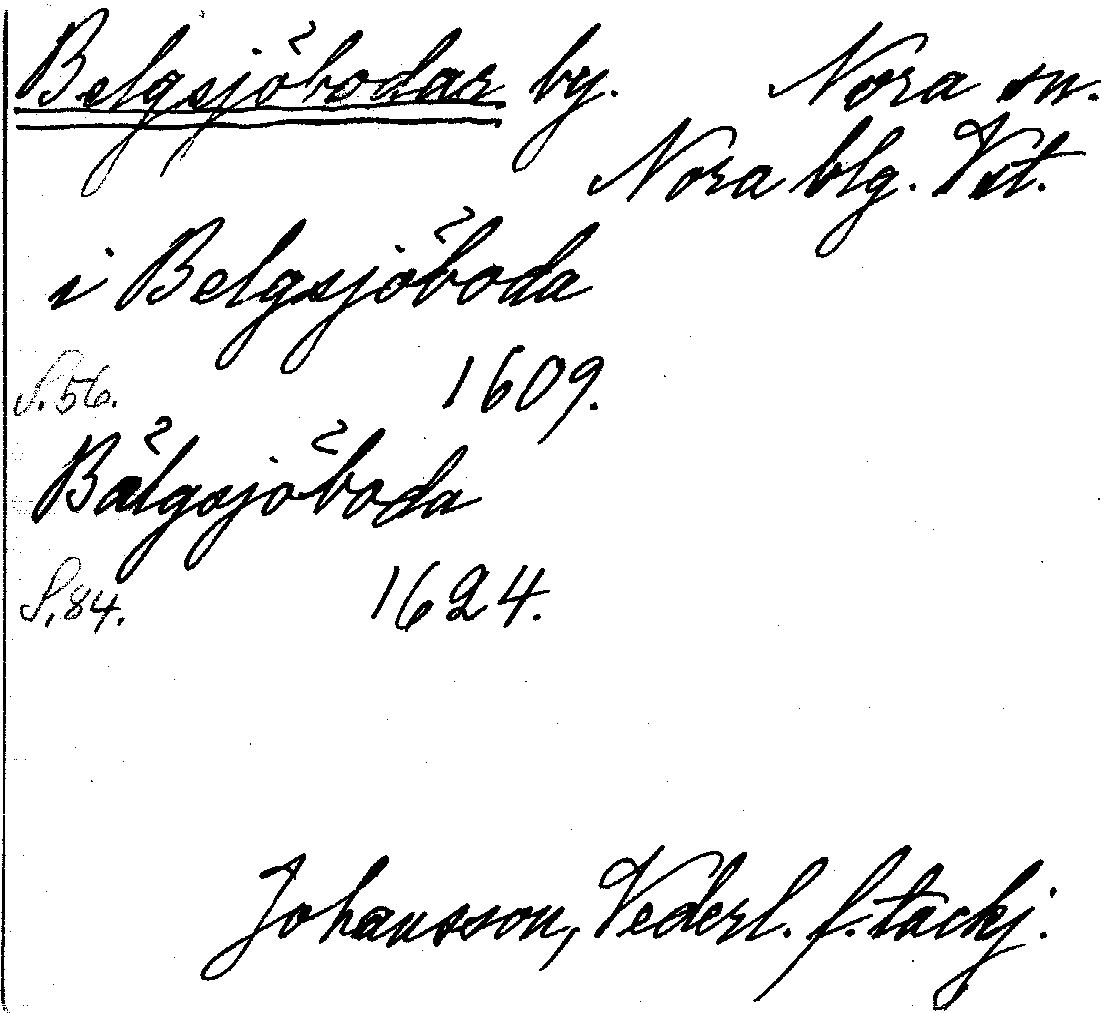 Belgsjöbodar by. Nora sn.
Nora blg. Vst.
i Belgsjöboda
S. 56. 1609.
Bälgsjöboda
S. 84. 1624.
Johansson, Vederl. f. tackj.